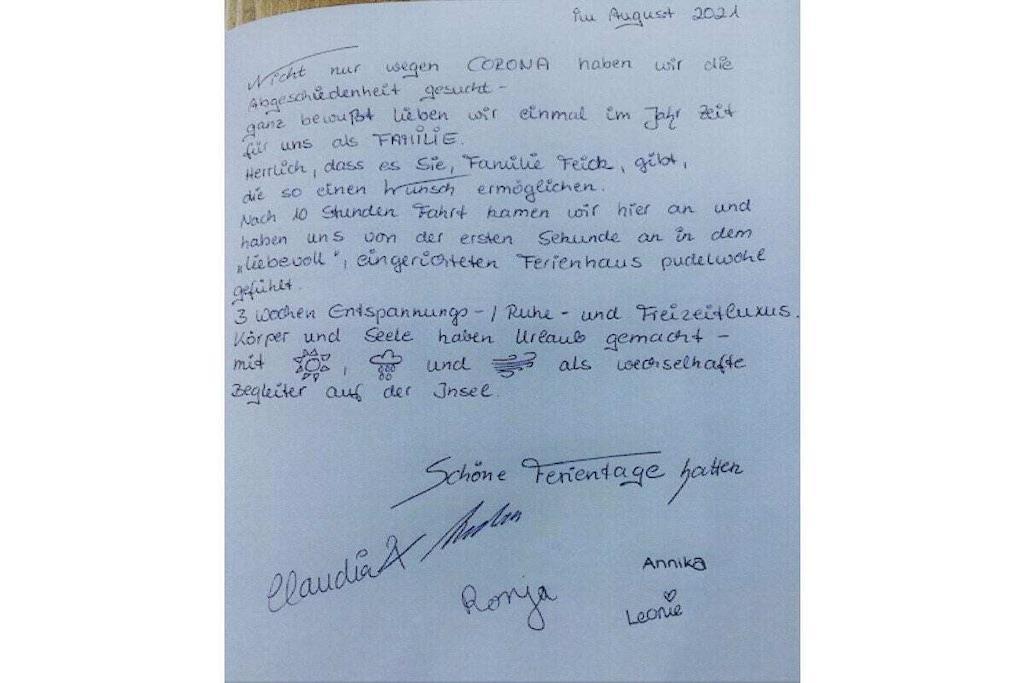 im August 2021
Nicht nur wegen CORONA haben wir die
Abgeschiedenheit gesucht -
ganz bewußt lieben wir einmal im Jahr Zeit
für uns als FAMILIE.
Herrlich, dass es Sie, Familie Feick, gibt,
die so einen Wunsch ermöglichen.
Nach 10 Stunden Fahrt kamen wir hier an und
haben uns von der ersten Sekunde an in dem
„liebevoll“, eingerichteten Ferienhaus pudelwohl
gefühlt.
3 Wochen Entspannungs-/Ruhe- und Freizeitluxus.
Körper und Seele haben Urlaub gemacht -
mit , und als wechselhafte
Begleiter auf der Insel.
Schöne Ferientage hatten
Claudia &
Ronja
Annika
Leonie